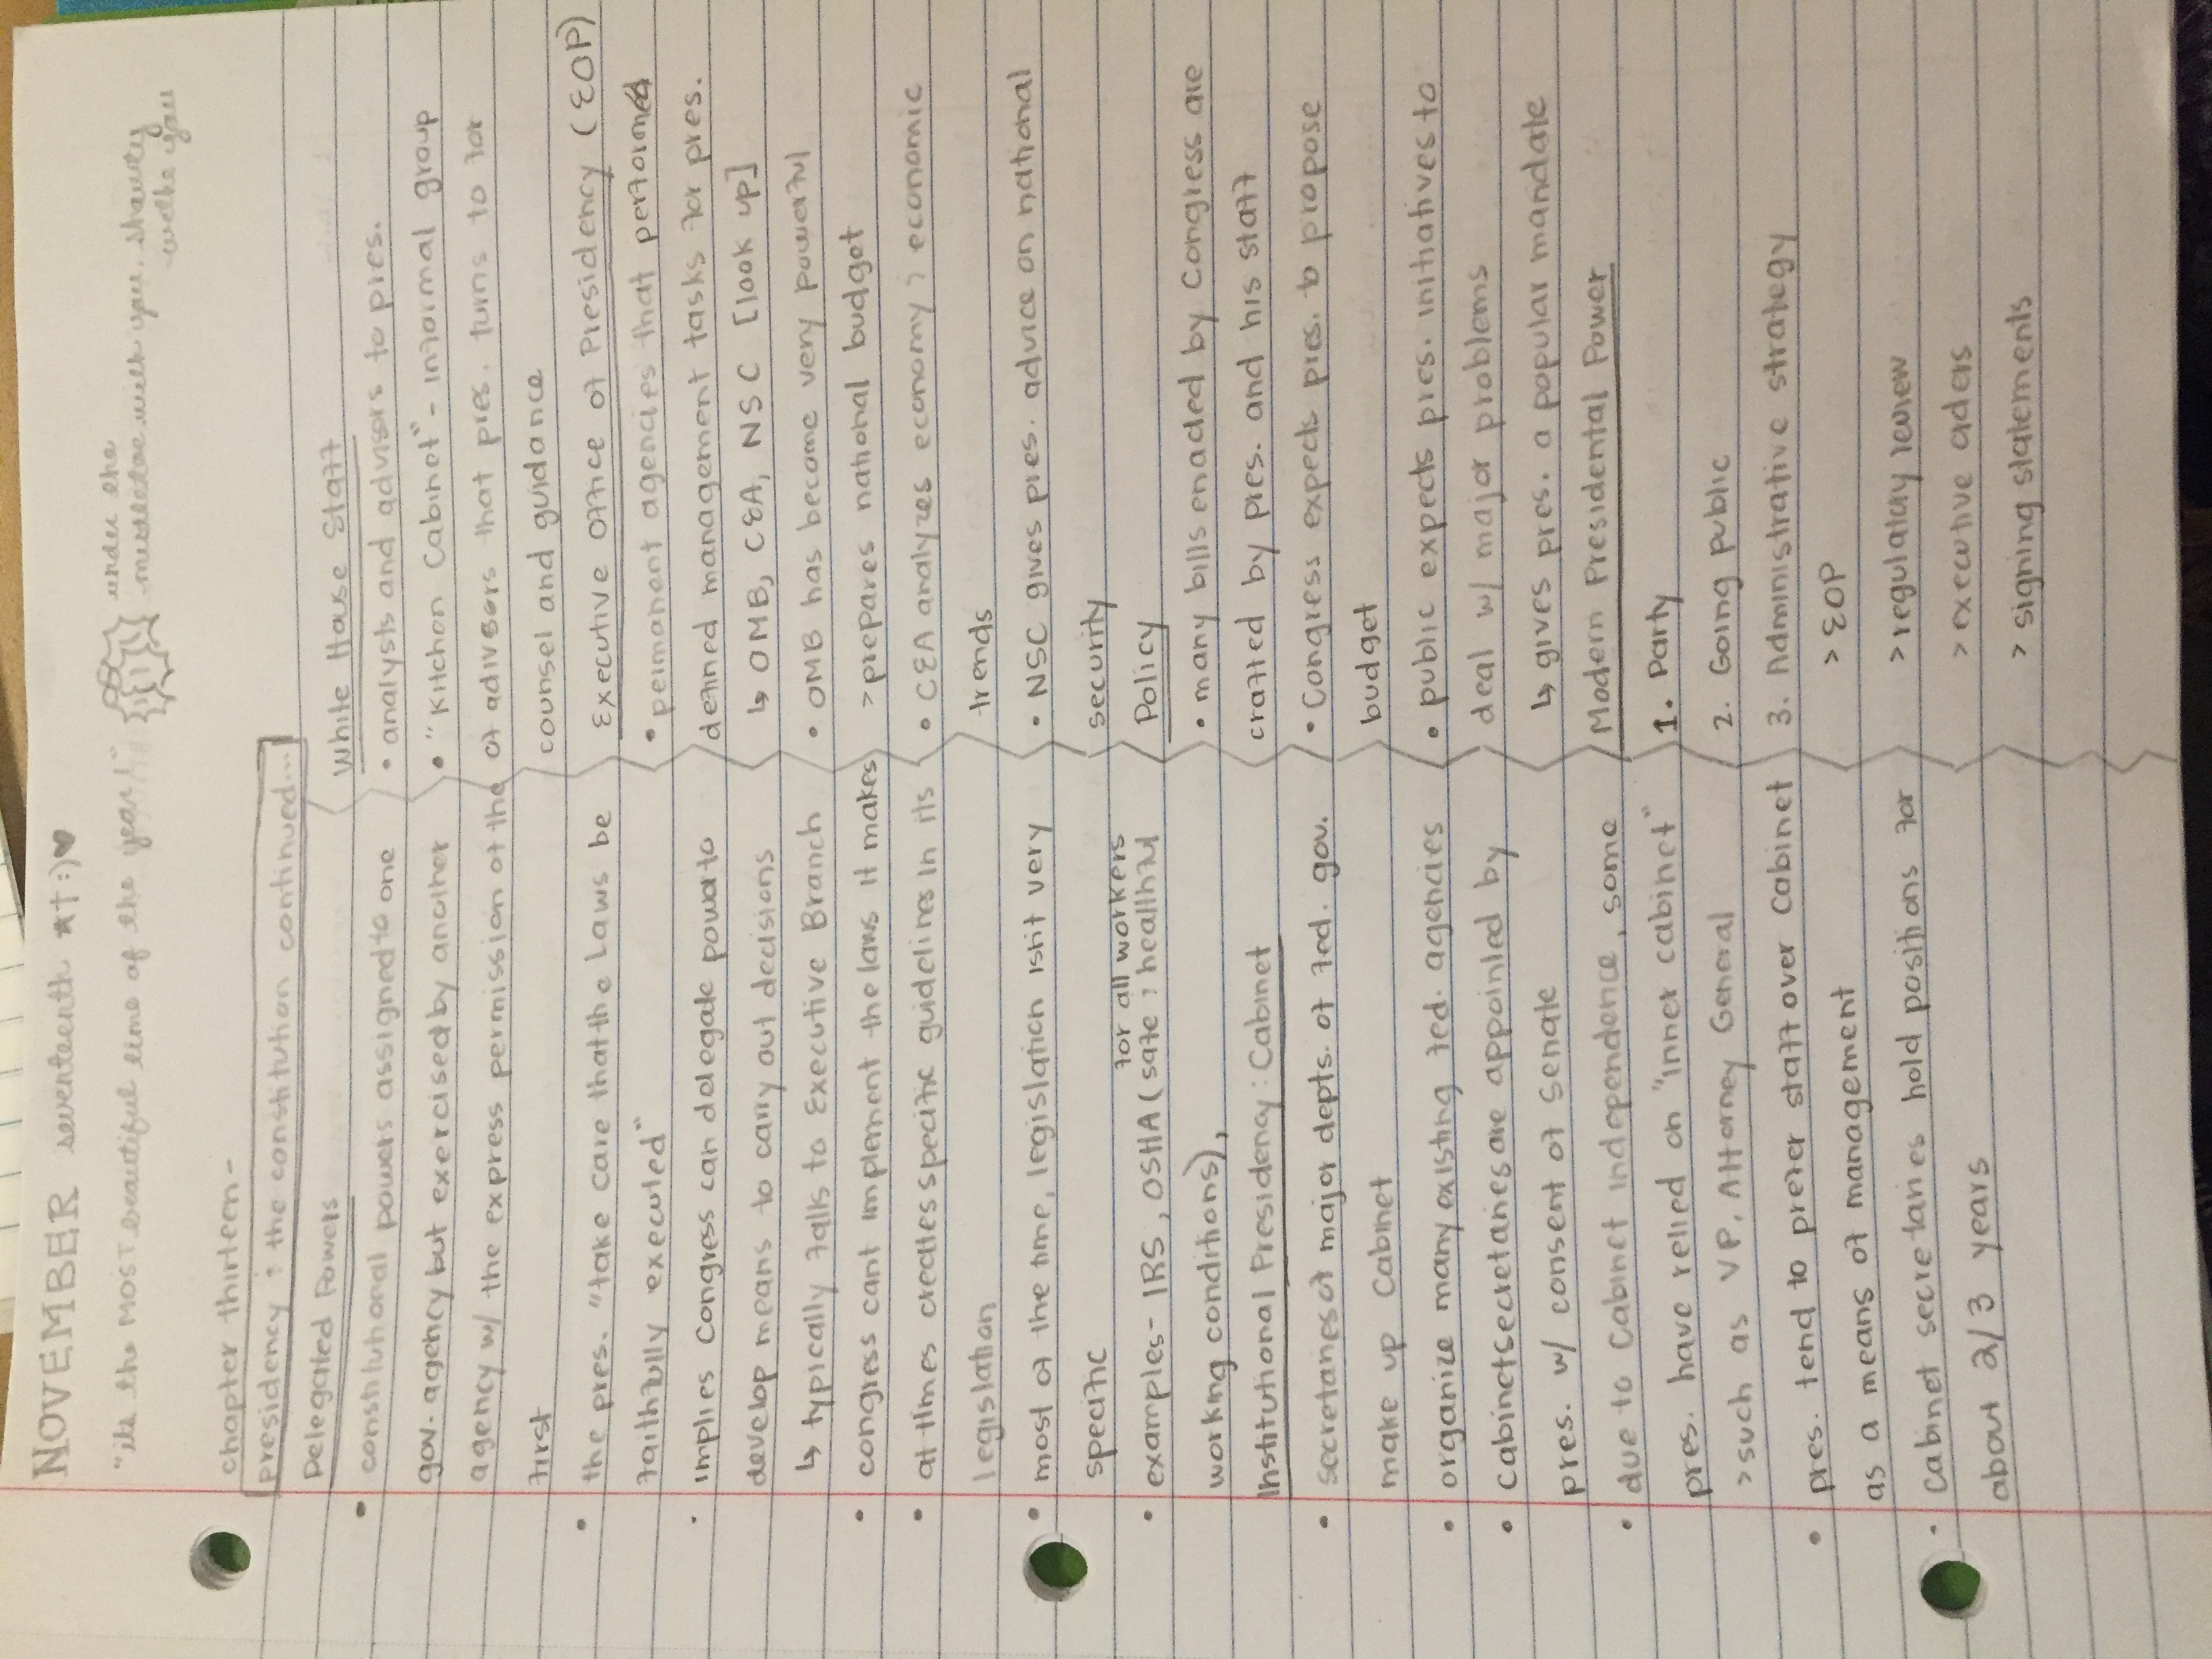 NOVEMBER seventeenth *†:)♥
"it's the MOST beautiful time of the year!"
under the
mistletoe with you, shawty
with you
chapter thirteen-
presidency ; the constitution continued...
Delegated Powers
• constitutional powers assigned to one
gov. agency but exercised by another
agency w/ the express permission of the
first
• the pres. "take care that the Laws be
faithfully executed"
· implies Congress can delegate power to
develop means to carry out decisions
↳ typically falls to Executive Branch
• congress cant implement the laws it makes
• at times creates specific guidelines in its
legislation
• most of the time, legislation isn't very
specific
for all workers
• examples- IRS, OSHA (safe ; healthful
working conditions),
Institutional Presidency: Cabinet
• secretaries of major depts. of fed. gov.
make up Cabinet
• organize many existing fed. agencies
• Cabinet secretaries are appointed by
pres. w/ consent of Senate
• due to Cabinet independence, some
pres. have relied on "inner cabinet"
> such as VP, Attorney General
• pres. tend to prefer staff over Cabinet
as a means of management
· Cabinet secretaries hold positions for
about 2/3 years
White House Staff
• analysts and advisors to pres.
• "Kitchen Cabinet" - informal group
of adivsers that pres. turns to for
counsel and guidance
Executive Office of Presidency (EOP)
• permanent agencies that perform
defined management tasks for pres.
↳ OMB, CEA, NSC [look up]
• OMB has become very powerful
> prepares national budget
• CEA analyzes economy ; economic
trends
• NSC gives pres. advice on national
security
Policy
• many bills enacted by Congress are
crafted by pres. and his staff
• Congress expects pres. to propose
budget
• public expects pres. initiatives to
deal w/ major problems
↳ gives pres. a popular mandate
Modern Presidental Power
1. Party
2. Going public
3. Administrative strategy
> EOP
> regulatory review
> executive orders
> signing statements